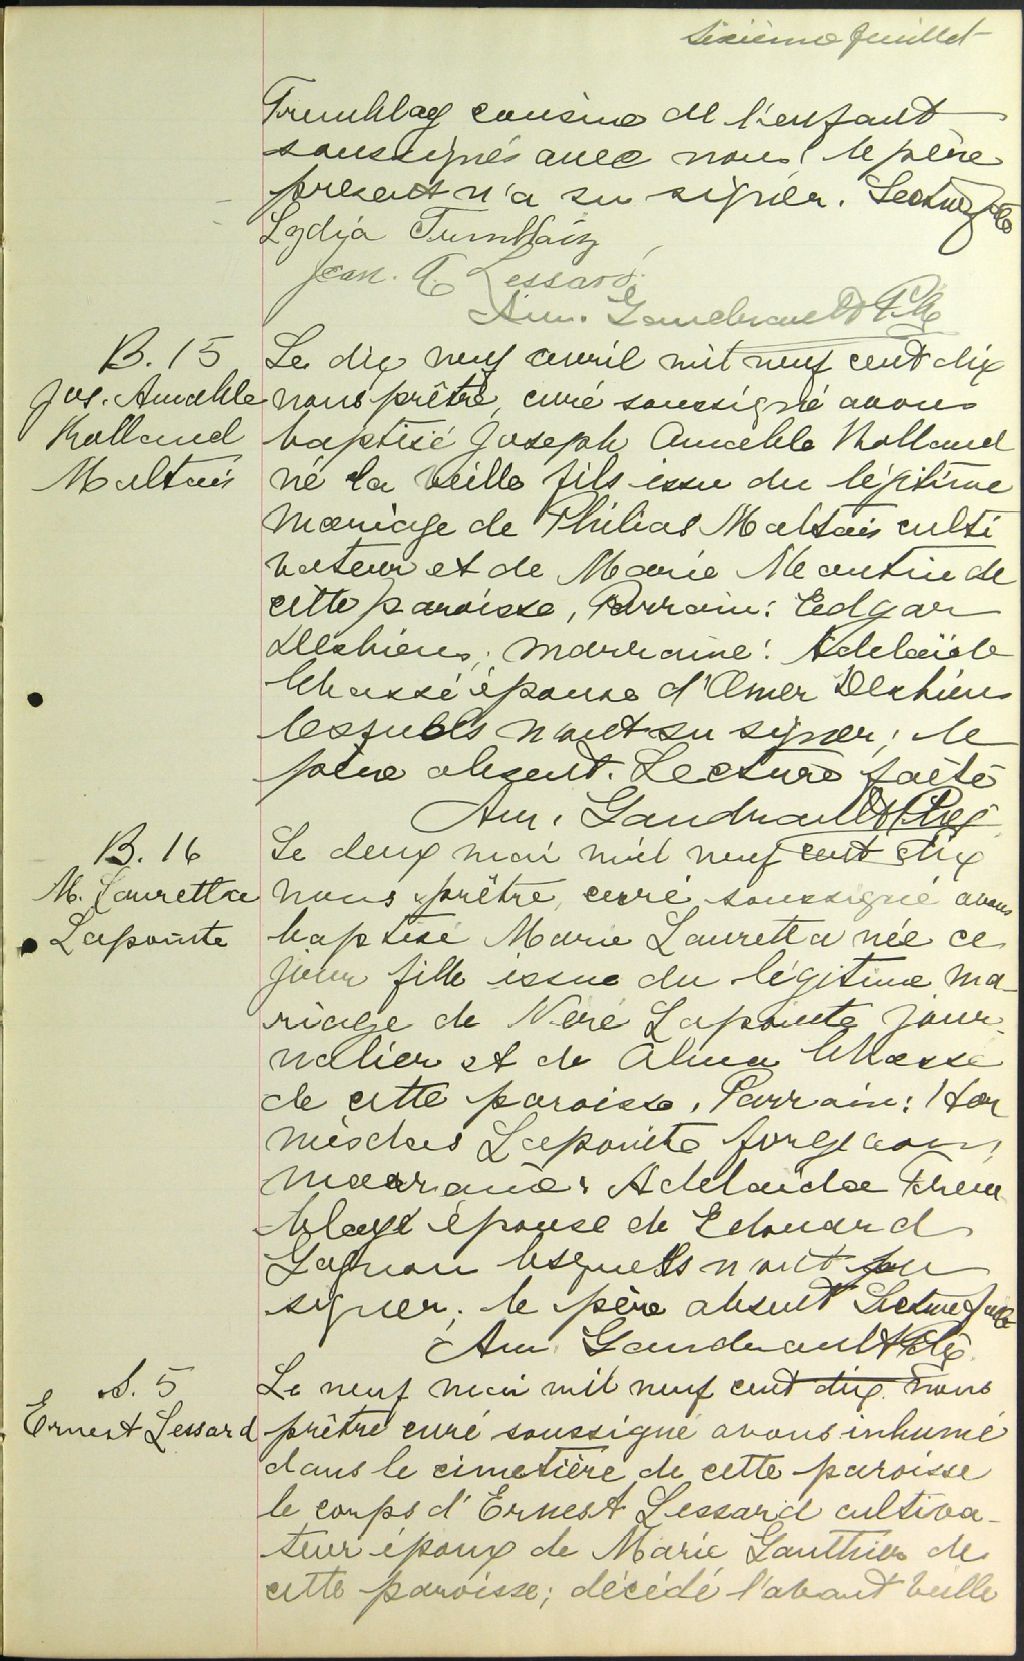 Sixième feuillet
Tremblay cousine de l'enfant
soussignés avec nous; le père
present n'a su signer. Lecture faite
Lydia Tremblay
Jean. A. Lessard.
Am. Gaudreault Ptre
B. 15
Jos. Amable
Rolland
Maltais
Le dix neuf avril mil neuf cent dix
nous prêtre, curé soussigné avons
baptisé Joseph Amable Rolland
né la veille fils issu du légitime
mariage de Philias Maltais culti
vateur et de Marie Martin de
cette paroisse, Parrain: Edgar
Deshiens; marraine: Adelaïde
Chassé épouse d'Omer Deshiens
lesquels n'ont su signer; le
père absent. Lecture faite
Am. Gaudreault Ptre
B. 16
M. Lauretta
Lapointe
Le deux mai mil neuf cent dix
nous prêtre, curé soussigné avons
baptisé Marie Lauretta née ce
jour fille issue du légitime ma-
riage de Néré Lapointe jour-
nalier et de Alma Chassé
de cette paroisse, Parrain: Hor
misdas Lapointe forgeron,
marraine: Adelaïda Trem
blaye épouse de Edouard
Gagnon lesquels n'ont pu
signer; le père absent Lecture faite
Am. Gaudreault Ptre
S. 5
Ernest Lessard
Le neuf mai mil neuf cent dix nous
prêtre curé soussigné avons inhumé
dans le cimetière de cette paroisse
le corps d'Ernest Lessard cultiva-
teur époux de Marie Gauthier de
cette paroisse; décédé l'avant veille